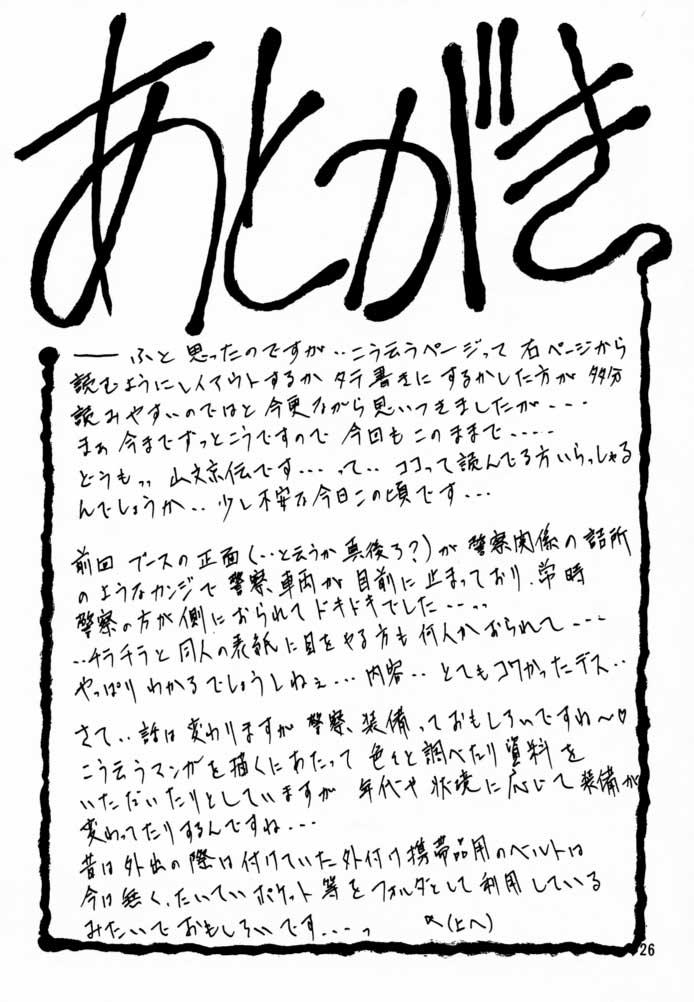 あとがき
── ふと思ったのですが‥こう云うページって右ページから
読むようにレイアウトするかタテ書きにするかした方が多分
読みやすいのではと今更ながら思いつきましたが・・・
まぁ今までずっとこうですので今回もこのままで・・・・・
どうもっ、山文京伝です・・・って‥ココって読んでる方いらっしゃる
んでしょうか‥少し不安な今日この頃です・・・
前回ブースの正面(‥と云うか真後ろ?)が警察関係の詰所
のようなカンジで警察車両が目前に止まっており、常時
警察の方が側におられてドキドキでした・・・・・
‥チラチラと同人の表紙に目をやる方も何人かおられて・・・
やっぱりわかるでしょうしねぇ・・・内容‥とてもコワかったデス‥
さて‥話は変わりますが警察装備っておもしろいですね～♡
こう云うマンガを描くにあたって色々と調べたり資料を
いただいたりとしていますが年代や状境に応じて装備が
変わってたりするんですね・・・
昔は外出の際は付けていた外付け携帯品用のベルトは
今は無く、たいていポケット等をフォルダとして利用している
みたいでおもしろいです・・・・っ (上へ)
26